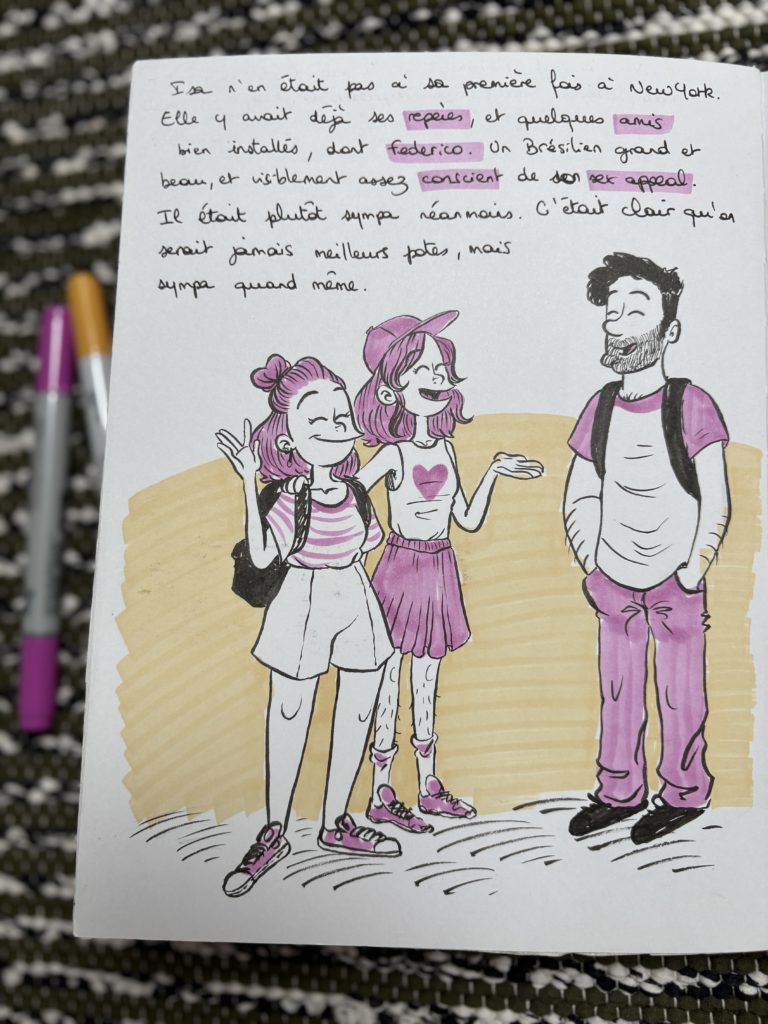 Isa n'en était pas à sa première fois à New York.
Elle y avait déjà ses repères, et quelques amis
bien installés, dont Federico. Un Brésilien grand et
beau, et visiblement assez conscient de son sex appeal.
Il était plutôt sympa néanmoins. C'était clair qu'on
serait jamais meilleurs potes, mais
sympa quand même.